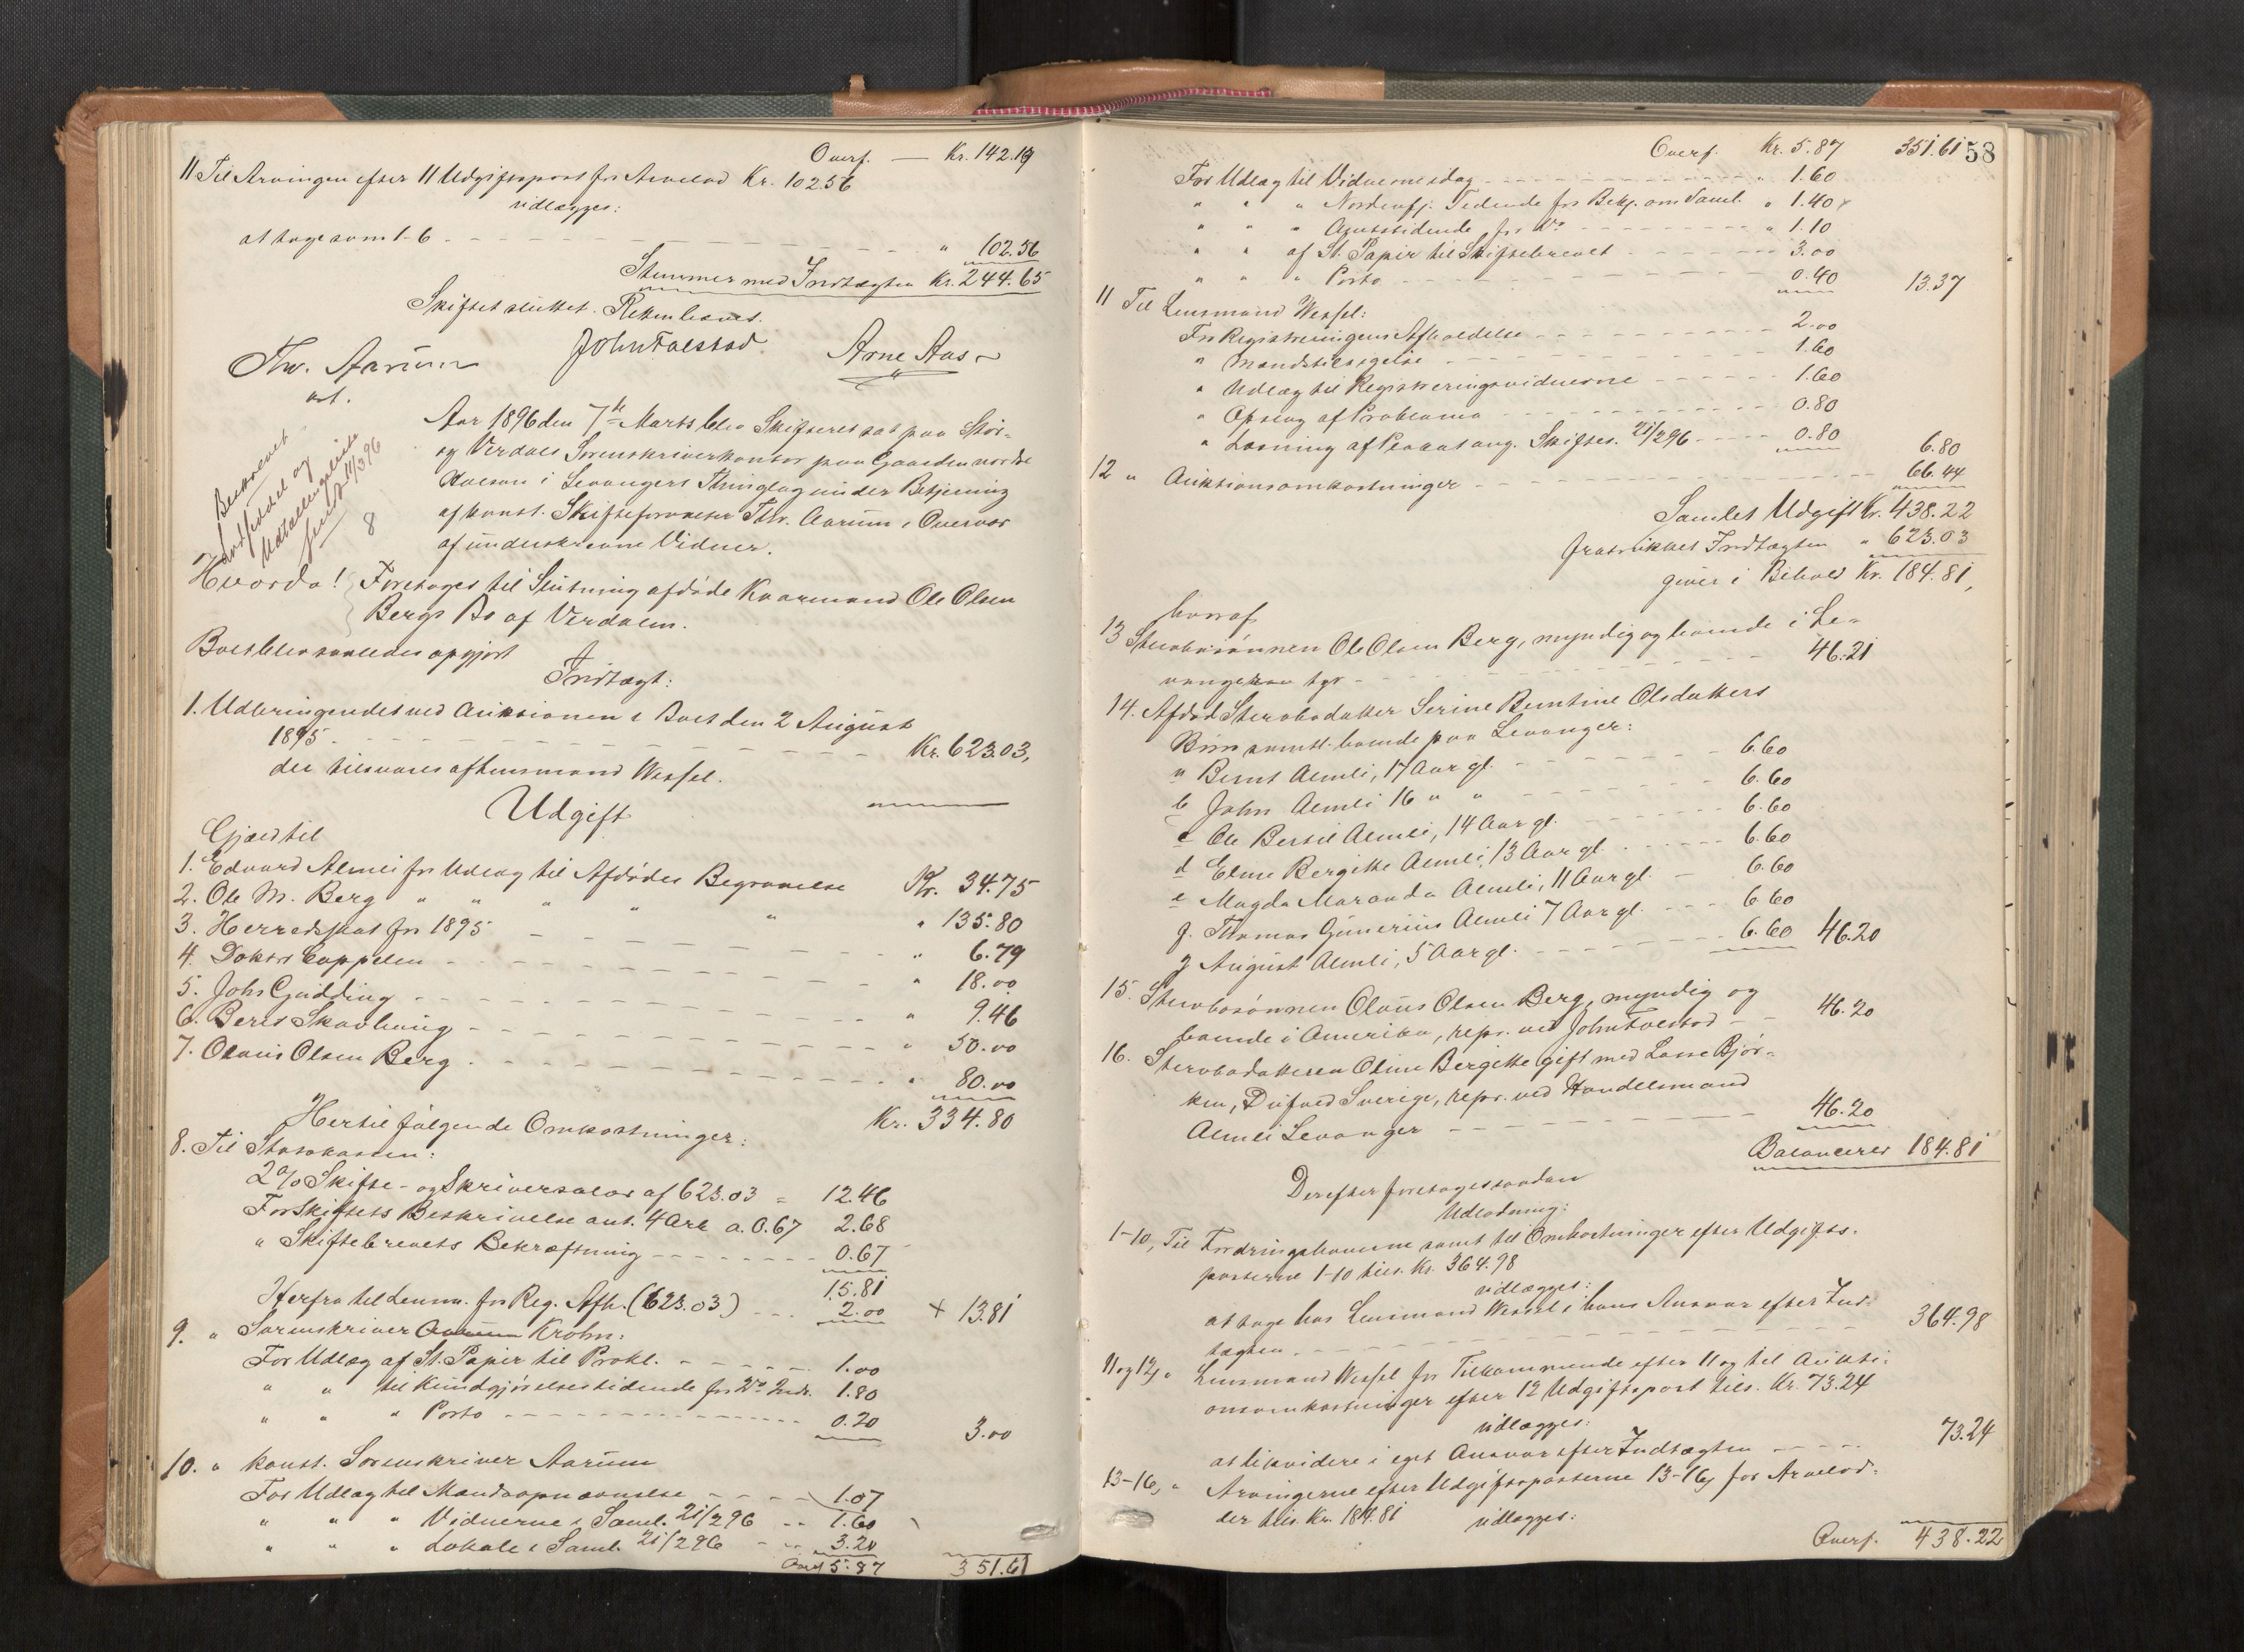 Overf. — Kr. 142.19
11 Til Arvingen efter 11 Udgiftspost for Arvelod Kr. 102.56
udlægges:
at tage som 1-6 " 102.56
Stemmer med Indtægten Kr. 244.65
Skiftet sluttet. Retten hævet.
Thv. Aarum John Faestad Arne Aas
cst.
Aar 1896 den 7de Marts blev Skifteret sat paa Stør-
og Værdals Sorenskriverkontor paa Gaarden nordre
i Levangers Thinglag under Betjening
af konst. Skifteforvalter Thv. Aarum i Overvær
af underskrevne Vidner.
Beskrevet
Lodseddel og
Udtællingsliste
11/3 96
8
Hvorda! Foretoges til Slutning afdøde Kaarmand Ole Olsen
Bergs Bo af Verdalen.
Boet blev saaledes opgjort
Indtægt:
1. Udbringendet ved Auktionen i Boet den 2 August
1895 Kr. 623.03,
der tilsvares af Lensmand Wessel.
Udgift
Gjæld til
1. Edvard Almli for Udlæg til Afdødes Begravelse Kr. 34.75
2. Ole M. Berg " " " " " " 135.80
3. Herredsskat for 1895 " 6.79
4. Doktor Cappelen " 18.00
5. Johs Gjidding " 9.46
6. Beret Skavhaug " 50.00
7. Olaus Olsen Berg " 80.00
Kr. 334.80
Hertil følgende Omkostninger:
8. Til Statskassen:
2% Skifte- og Skriversalær af 623.03 = 12.46
For Skiftets Beskrivelse ant. 4 Ark a 0.67 2.68
" Skiftebrevets Bekræftning 0.67
15.81
Herfra til Lensm. for Reg. Afh. (623.03) 2.00 + 13.81
9. " Sorenskriver Aarum Krohn:
For Udlæg af St. Papir til Prokl. 1.00
" " til Kundgjørelsestidende for Do Indr. 1.80
" " " Porto 0.20 3.00
10. " konst. Sorenskriver Aarum
For Udlæg til Mandsopnævnelse 1.07
" " " Vidnerne i Saml. 21/2 96 1.60
" " " Lokale i Saml. 21/2 96 3.20
Overf 5.87 351.61
Overf. Kr. 5.87 351.61 58
For Udlæg til Vidnerne idag " 1.60
" " " Nordenfj. Tidende for Bekj. om Saml. " 1.40
" " " Amtstidende for Do " 1.10
" " af St. Papir til Skiftebrevet 3.00
" " " Porto 0.40 13.37
11 Til Lensmand Wessel:
For Registreringens Afholdelse 2.00
" Mandstilsigelse 1.60
" Udlæg til Registreringsvidnerne 1.60
" Opslag af Proklama 0.80
" Læsning af Plakat ang. Skiftes. 21/2 96 0.80 6.80
12 " Auktionsomkostninger 66.44
Samlet Udgift Kr. 438.22
fratrukket Indtægten " 623.03
giver i Behold Kr. 184.81,
hvoraf
13 Stervbosønnen Ole Olsen Berg, myndig og boende i Le-
vanger 46.21
14. Afdød Stervbodatter Serine Berntine Olsdatters
Børn samtl. boende paa Levanger:
a Bernt Almli, 17 Aar gl. 6.60
b John Almli 16 " " 6.60
c Ole Bertil Almli, 14 Aar gl. 6.60
d Eline Bergitte Almli, 13 Aar gl. 6.60
e Magda Maranda Almli, 11 Aar gl. 6.60
f. Thomas Gunerius Almli 7 Aar gl. 6.60
g August Almli, 5 Aar gl. 6.60 46.20
15. Stervbosønnen Olaus Olsen Berg, myndig og
boende i Amerika, repr. ved John Faestad 46.20
16. Stervbodatteren Oline Bergitte gift med Lasse Bjør-
ken, Dufved Sverige, repr. ved Handelsmand
Almli Levanger 46.20
Balancerer 184.81
Derefter foretoges saadan
Udlodning:
1-10, Til Fordringshaverne samt til Omkostninger efter Udgifts-
posterne 1-10 tils. Kr. 364.98
udlægges:
at tage hos Lensmand Wessel i hans Ansvar efter Ind-
tægten 364.98
11 og 12, " Lensmand Wessel for Tilkommende efter 11 og til Aukti-
onsomkostninger efter 12 Udgiftspost tils. Kr. 73.24
udlægges:
at likvidere i eget Ansvar efter Indtægten 73.24
13-16, " Arvingerne efter Udgiftsposterne 13-16, for Arvelod-
der tils. Kr. 184.81 udlægges:
Overf. 438.22